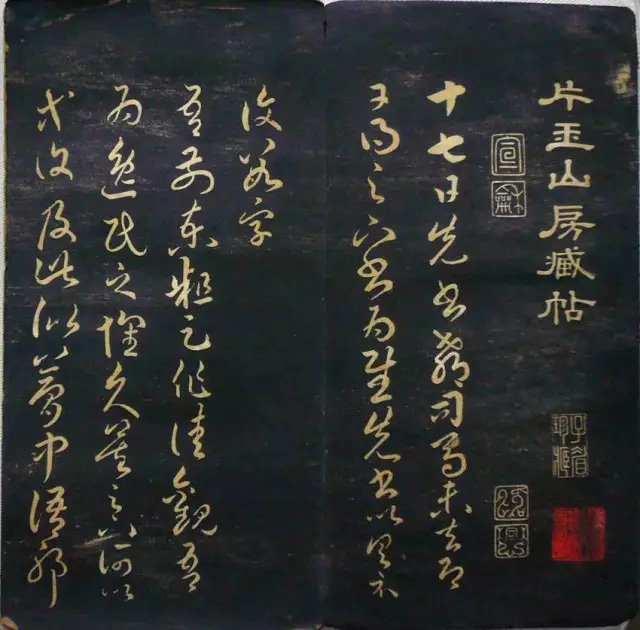 片玉山房藏帖
宣
龢
十七日先書郗司馬未去即
日得足下書為慰先書以具示
復數字
吾前東粗足作佳觀吾
為逸民之懷久矣足下何以
方復及此似夢中語耶